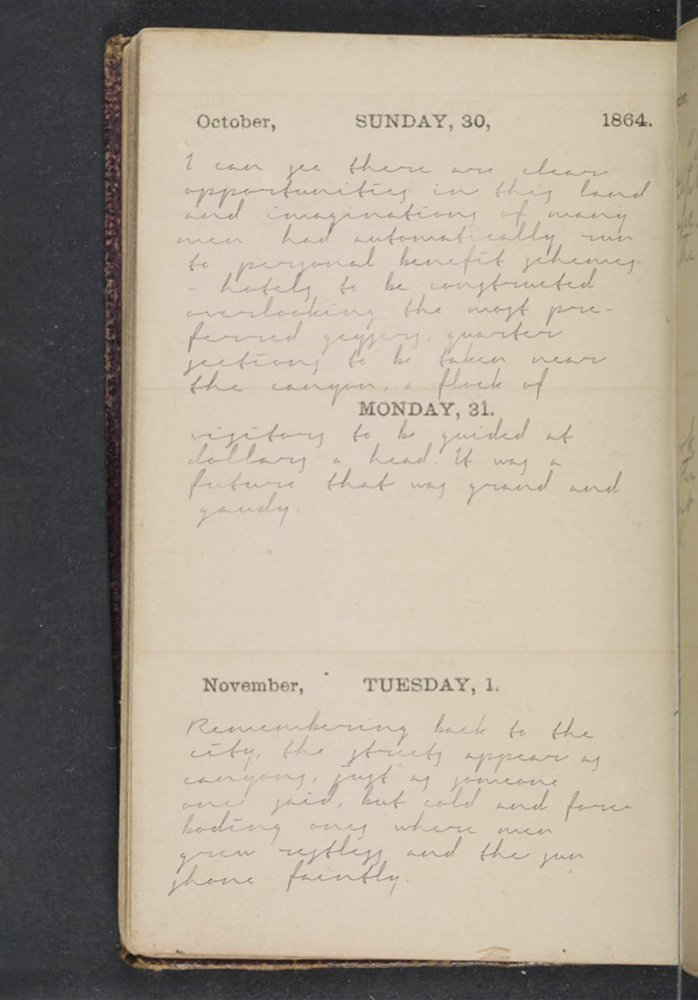 October, SUNDAY, 30, 1864.
I can see there are clear
opportunities in this land
and imaginations of many
men had automatically run
to personal benefit schemes
- hotels to be constructed
overlooking the most pre-
ferred geysers, quarter
sections to be taken near
the canyon, a flock of
MONDAY, 31.
visitors to be guided at
dollars a head. It was a
future that was grand and
gaudy.
November, TUESDAY, 1.
Remembering back to the
city, the streets appear as
canyons, just as someone
once said, but cold and fore
boding ones where men
grew restless and the sun
shone faintly.